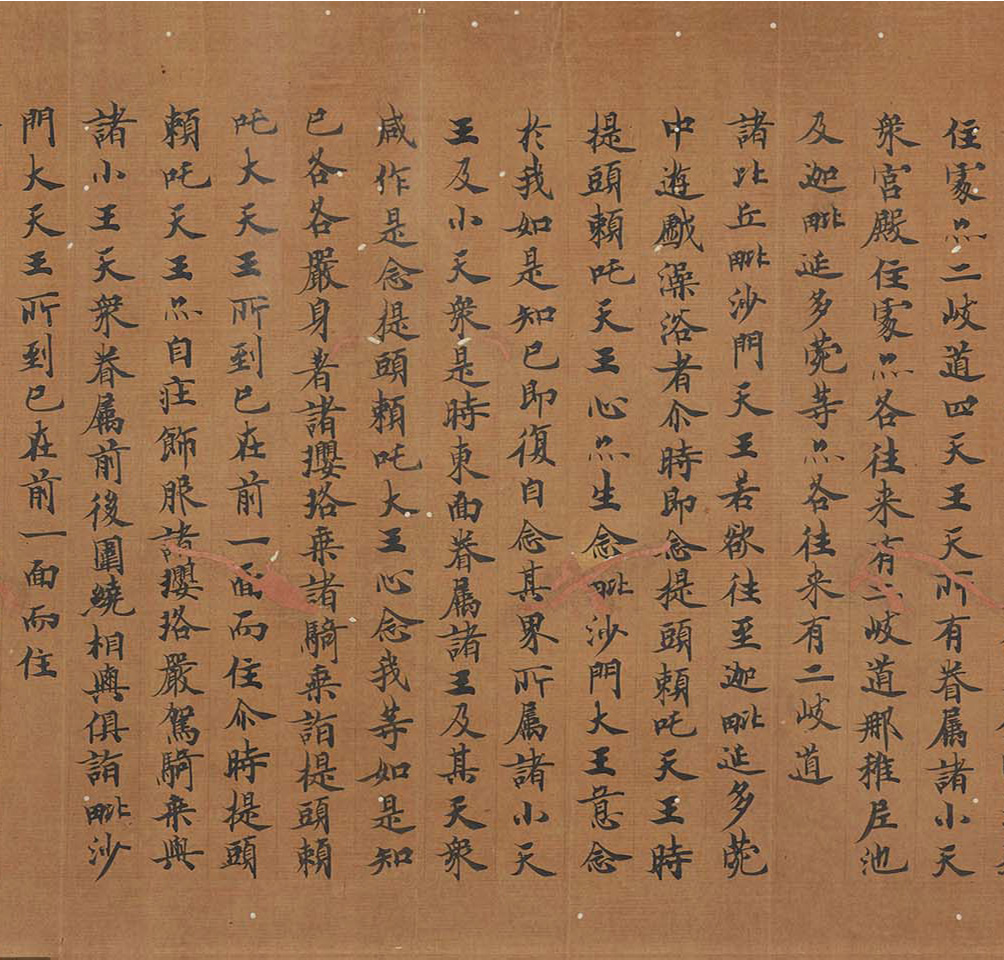 住處亦二岐道四天王天所有眷属諸小天
衆宮殿住處亦各往来有二岐道那稚尼池
及迦毗延多菀等亦各往来有二岐道
諸比丘毗沙門天王若欲往至迦毗延多菀
中遊戱澡浴者尒時即念提頭頼吒天王時
提頭頼吒天王心亦生念毗沙門大王意念
於我如是知已即復自念其界所属諸小天
王及小天衆是時東面眷属諸王及其天衆
咸作是念提頭頼吒大王心念我等如是知
已各各嚴身著諸瓔珞乗諸騎乗詣提頭頼
吒大天王所到已在前一面而住尒時提頭
頼吒天王亦自莊飾服諸瓔珞嚴駕騎乗與
諸小王天衆眷属前後圍繞相與俱詣毗沙
門大天王所到已在前一面而住